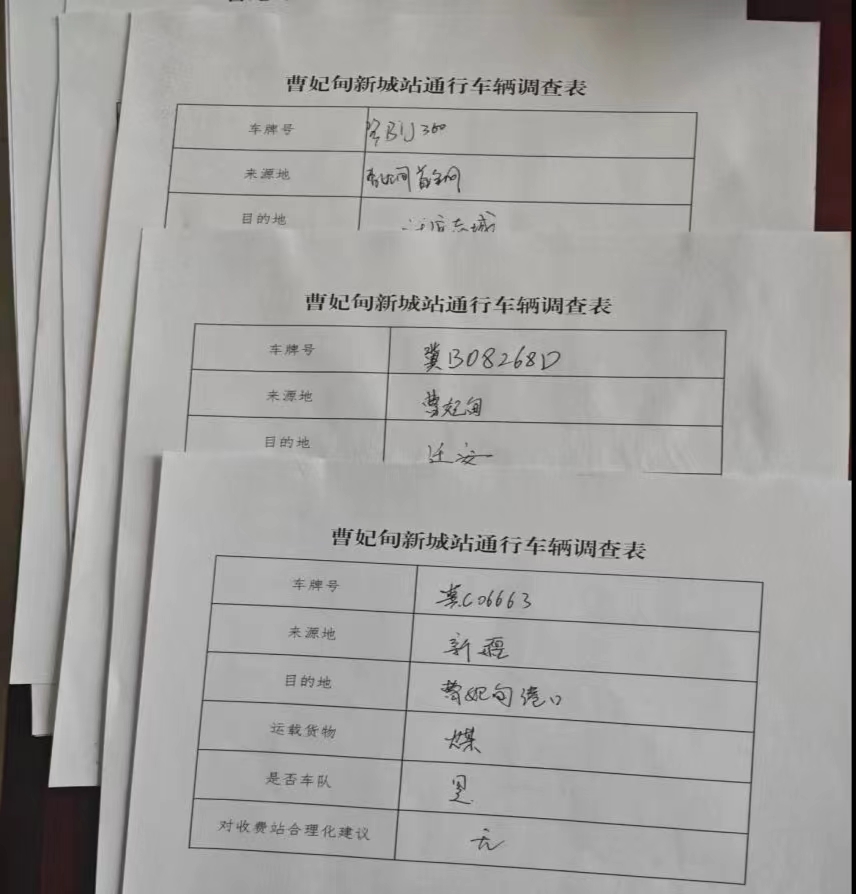 曹妃甸新城站通行车辆调查表
车牌号
来源地 曹妃甸
目的地
曹妃甸新城站通行车辆调查表
车牌号 冀B08268D
来源地 曹妃甸
目的地 迁安
曹妃甸新城站通行车辆调查表
车牌号 冀C06663
来源地 新疆
目的地 曹妃甸港口
运载货物 煤
是否车队 是
对收费站合理化建议 无